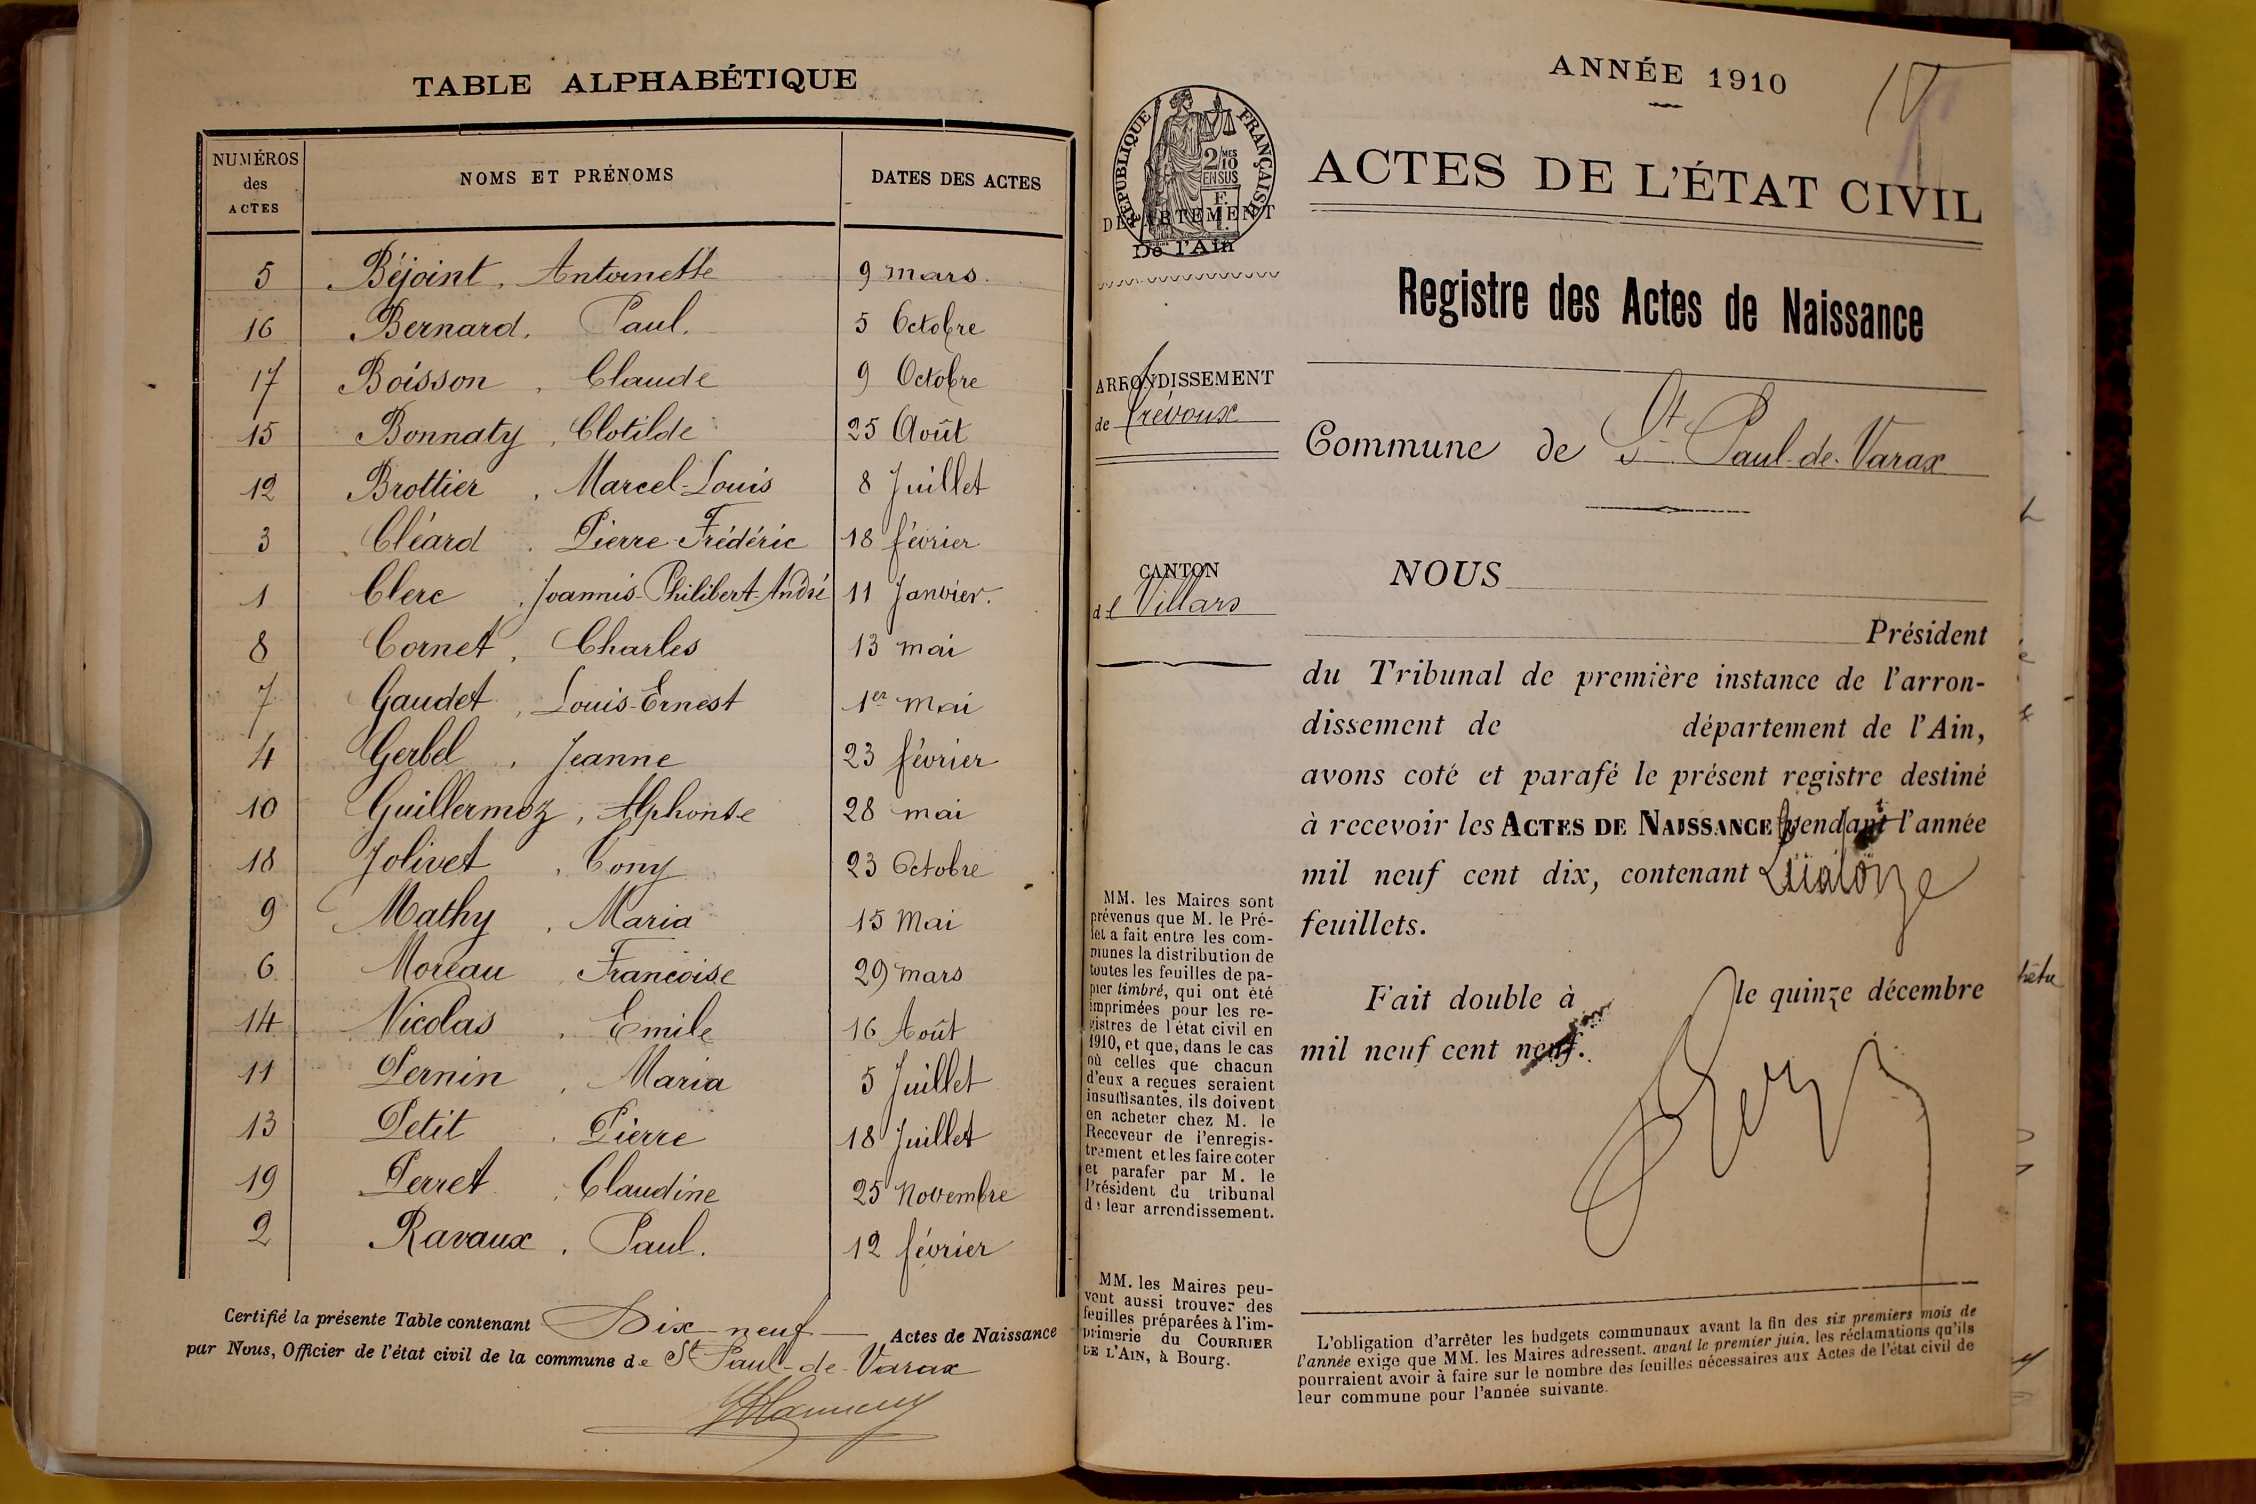 TABLE ALPHABÉTIQUE
NUMÉROS des ACTES NOMS ET PRÉNOMS DATES DES ACTES
5 Béjoint, Antoinette 9 mars
16 Bernard, Paul. 5 Octobre
17 Boisson, Claude 9 Octobre
15 Bonnaty, Clotilde 25 Août
12 Brottier, Marcel-Louis 8 Juillet
3 Cléard, Pierre-Frédéric 18 février
1 Clerc, Joannis-Philibert-André 11 Janvier.
8 Cornet, Charles 13 mai
7 Gaudet, Louis-Ernest 1er mai
4 Gerbel, Jeanne 23 février
10 Guillermoz, Alphonse 28 mai
18 Jolivet, Tony 23 Octobre
9 Mathy, Maria 15 Mai
6 Moreau, Françoise 29 mars
14 Nicolas, Emile 16 Août
11 Pernin, Maria 5 Juillet
13 Petit, Pierre 18 Juillet
19 Perret, Claudine 25 Novembre
2 Ravaux, Paul. 12 février
Certifié la présente Table contenant Dix-neuf Actes de Naissance
par Nous, Officier de l'état civil de la commune de St Paul-de-Varax
RÉPUBLIQUE FRANÇAISE
2/10 MES
EN SUS
DÉPARTEMENT
De l'Ain
ARRONDISSEMENT
de Trévoux
CANTON
de Villars
MM. les Maires sont
prévenus que M. le Pré-
fet a fait entre les com-
munes la distribution de
toutes les feuilles de pa-
pier timbré, qui ont été
imprimées pour les re-
gistres de l'état civil en
1910, et que, dans le cas
où celles que chacun
d'eux a reçues seraient
insuffisantes, ils doivent
en acheter chez M. le
Receveur de l'enregis-
trement et les faire coter
et parafer par M. le
Président du tribunal
de leur arrondissement.
MM. les Maires peu-
vent aussi trouver des
feuilles préparées à l'im-
primerie du COURRIER
DE L'AIN, à Bourg.
ANNÉE 1910
ACTES DE L'ÉTAT CIVIL
Registre des Actes de Naissance
Commune de St Paul-de-Varax
NOUS
Président
du Tribunal de première instance de l'arron-
dissement de département de l'Ain,
avons coté et parafé le présent registre destiné
à recevoir les ACTES DE NAISSANCE pendant l'année
mil neuf cent dix, contenant
feuillets.
Fait double à le quinze décembre
mil neuf cent neuf.
L'obligation d'arrêter les budgets communaux avant la fin des six premiers mois de
l'année exige que MM. les Maires adressent, avant le premier juin, les réclamations qu'ils
pourraient avoir à faire sur le nombre des feuilles nécessaires aux Actes de l'état civil de
leur commune pour l'année suivante.